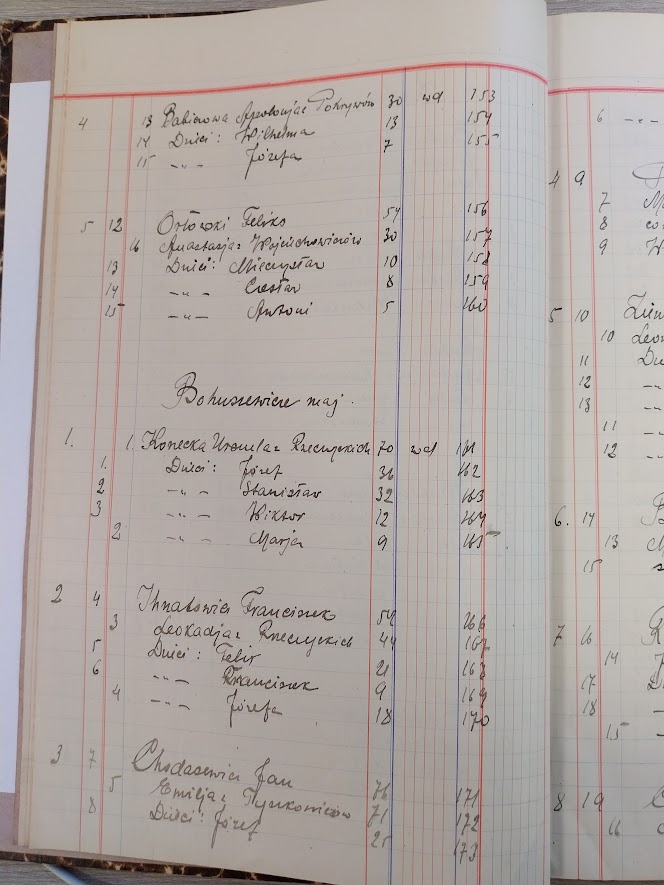 4 13 Babicowa Apolonja z Pokrywów 30 wd 153
14 Dzieci: Wilhelma 13 154
15 -"- Józefa 7 155
5 12 Orłowski Feliks 54 156
16 Anastazja z Wojciechowiczów 30 157
13 Dzieci: Mieczysław 10 158
14 -"- Czesław 8 159
15 -"- Antoni 5 160
Bohuszewicze maj.
1. 1. Konecka Urszula z Rzeczyckich 70 wd 161
1. Dzieci: Józef 36 162
2 -"- Stanisław 32 163
3 -"- Wiktor 12 164
2 -"- Marja 9 165
2 4 Ihnatowicz Franciszek 54 166
3 Leokadja z Rzeczyckich 44 167
5 Dzieci: Felix 21 168
6 -"- Franciszek 9 169
4 -"- Józefa 18 170
3 7 Chodasewicz Jan 76 171
5 Emilja z Tyszkowiczów 71 172
8 Dzieci: Józef 25 173
6 -"-
4 9
7
8
9
5 10
10
11
12 -"-
13 -"-
11 -"-
12 -"-
6. 14
13
15
7 16
14
17
18
15
8 19
16